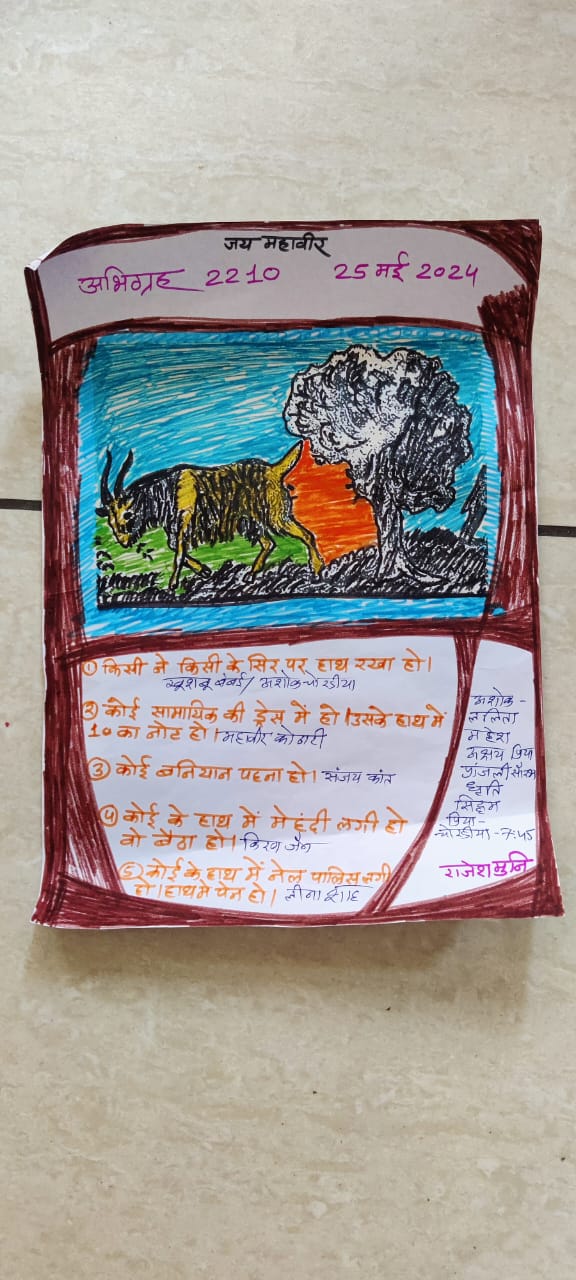 जय महावीर
अभिग्रह 2210 25 मई 2024
① किसी ने किसी के सिर पर हाथ रखा हो।
खुशबू बंबई / अशोक चोरडीया
② कोई सामायिक की ड्रेस में हो। उसके हाथ में
10 का नोट हो। महावीर कोठारी
③ कोई बनियान पहना हो। संजय कांत
④ कोई के हाथ में मेहंदी लगी हो
वो बैठा हो। किरण जैन
⑤ कोई के हाथ में नेल पालिस लगी
हो। हाथ में पेन हो। लीना
अशोक -
ललिता
महेश
अक्षय प्रिया
सौरभ
धृति
सिद्धम
प्रिया -
चोरडीया - 7:45
राजेश मुनि